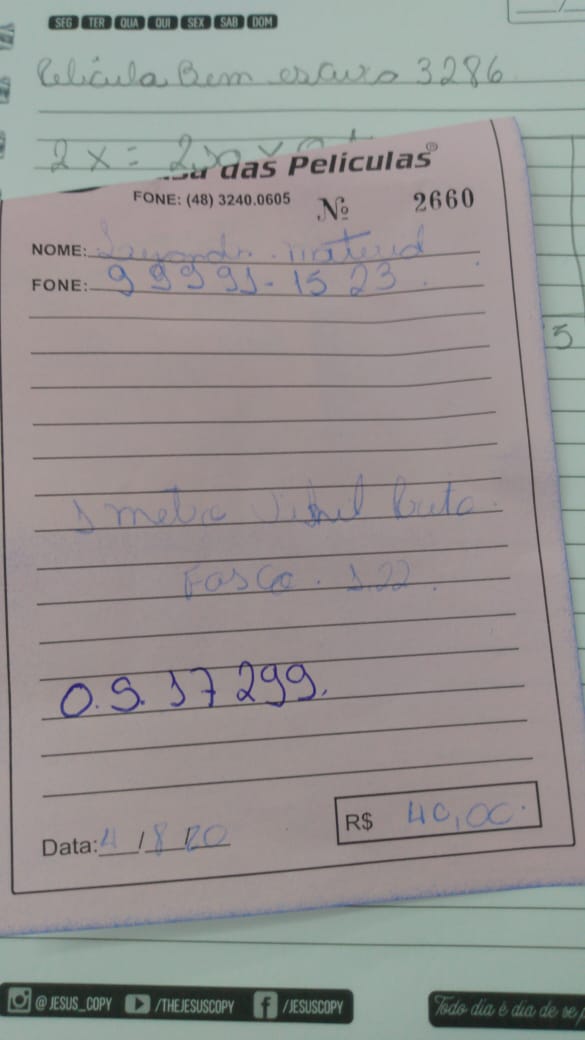 SEG TER QUA QUI SEX SAB DOM
Pelicula Bem escuro 3286
2 x = 2,50 x
das Peliculas®
FONE: (48) 3240.0605 Nº 2660
NOME: material
FONE: 99991-1523.
1 metro preto
Fosco. 1.22.
O.S. 17299.
R$ 40,00.
Data: 4/8/20
5
@JESUS_COPY /THEJESUSCOPY /JESUSCOPY
Todo dia é dia de se